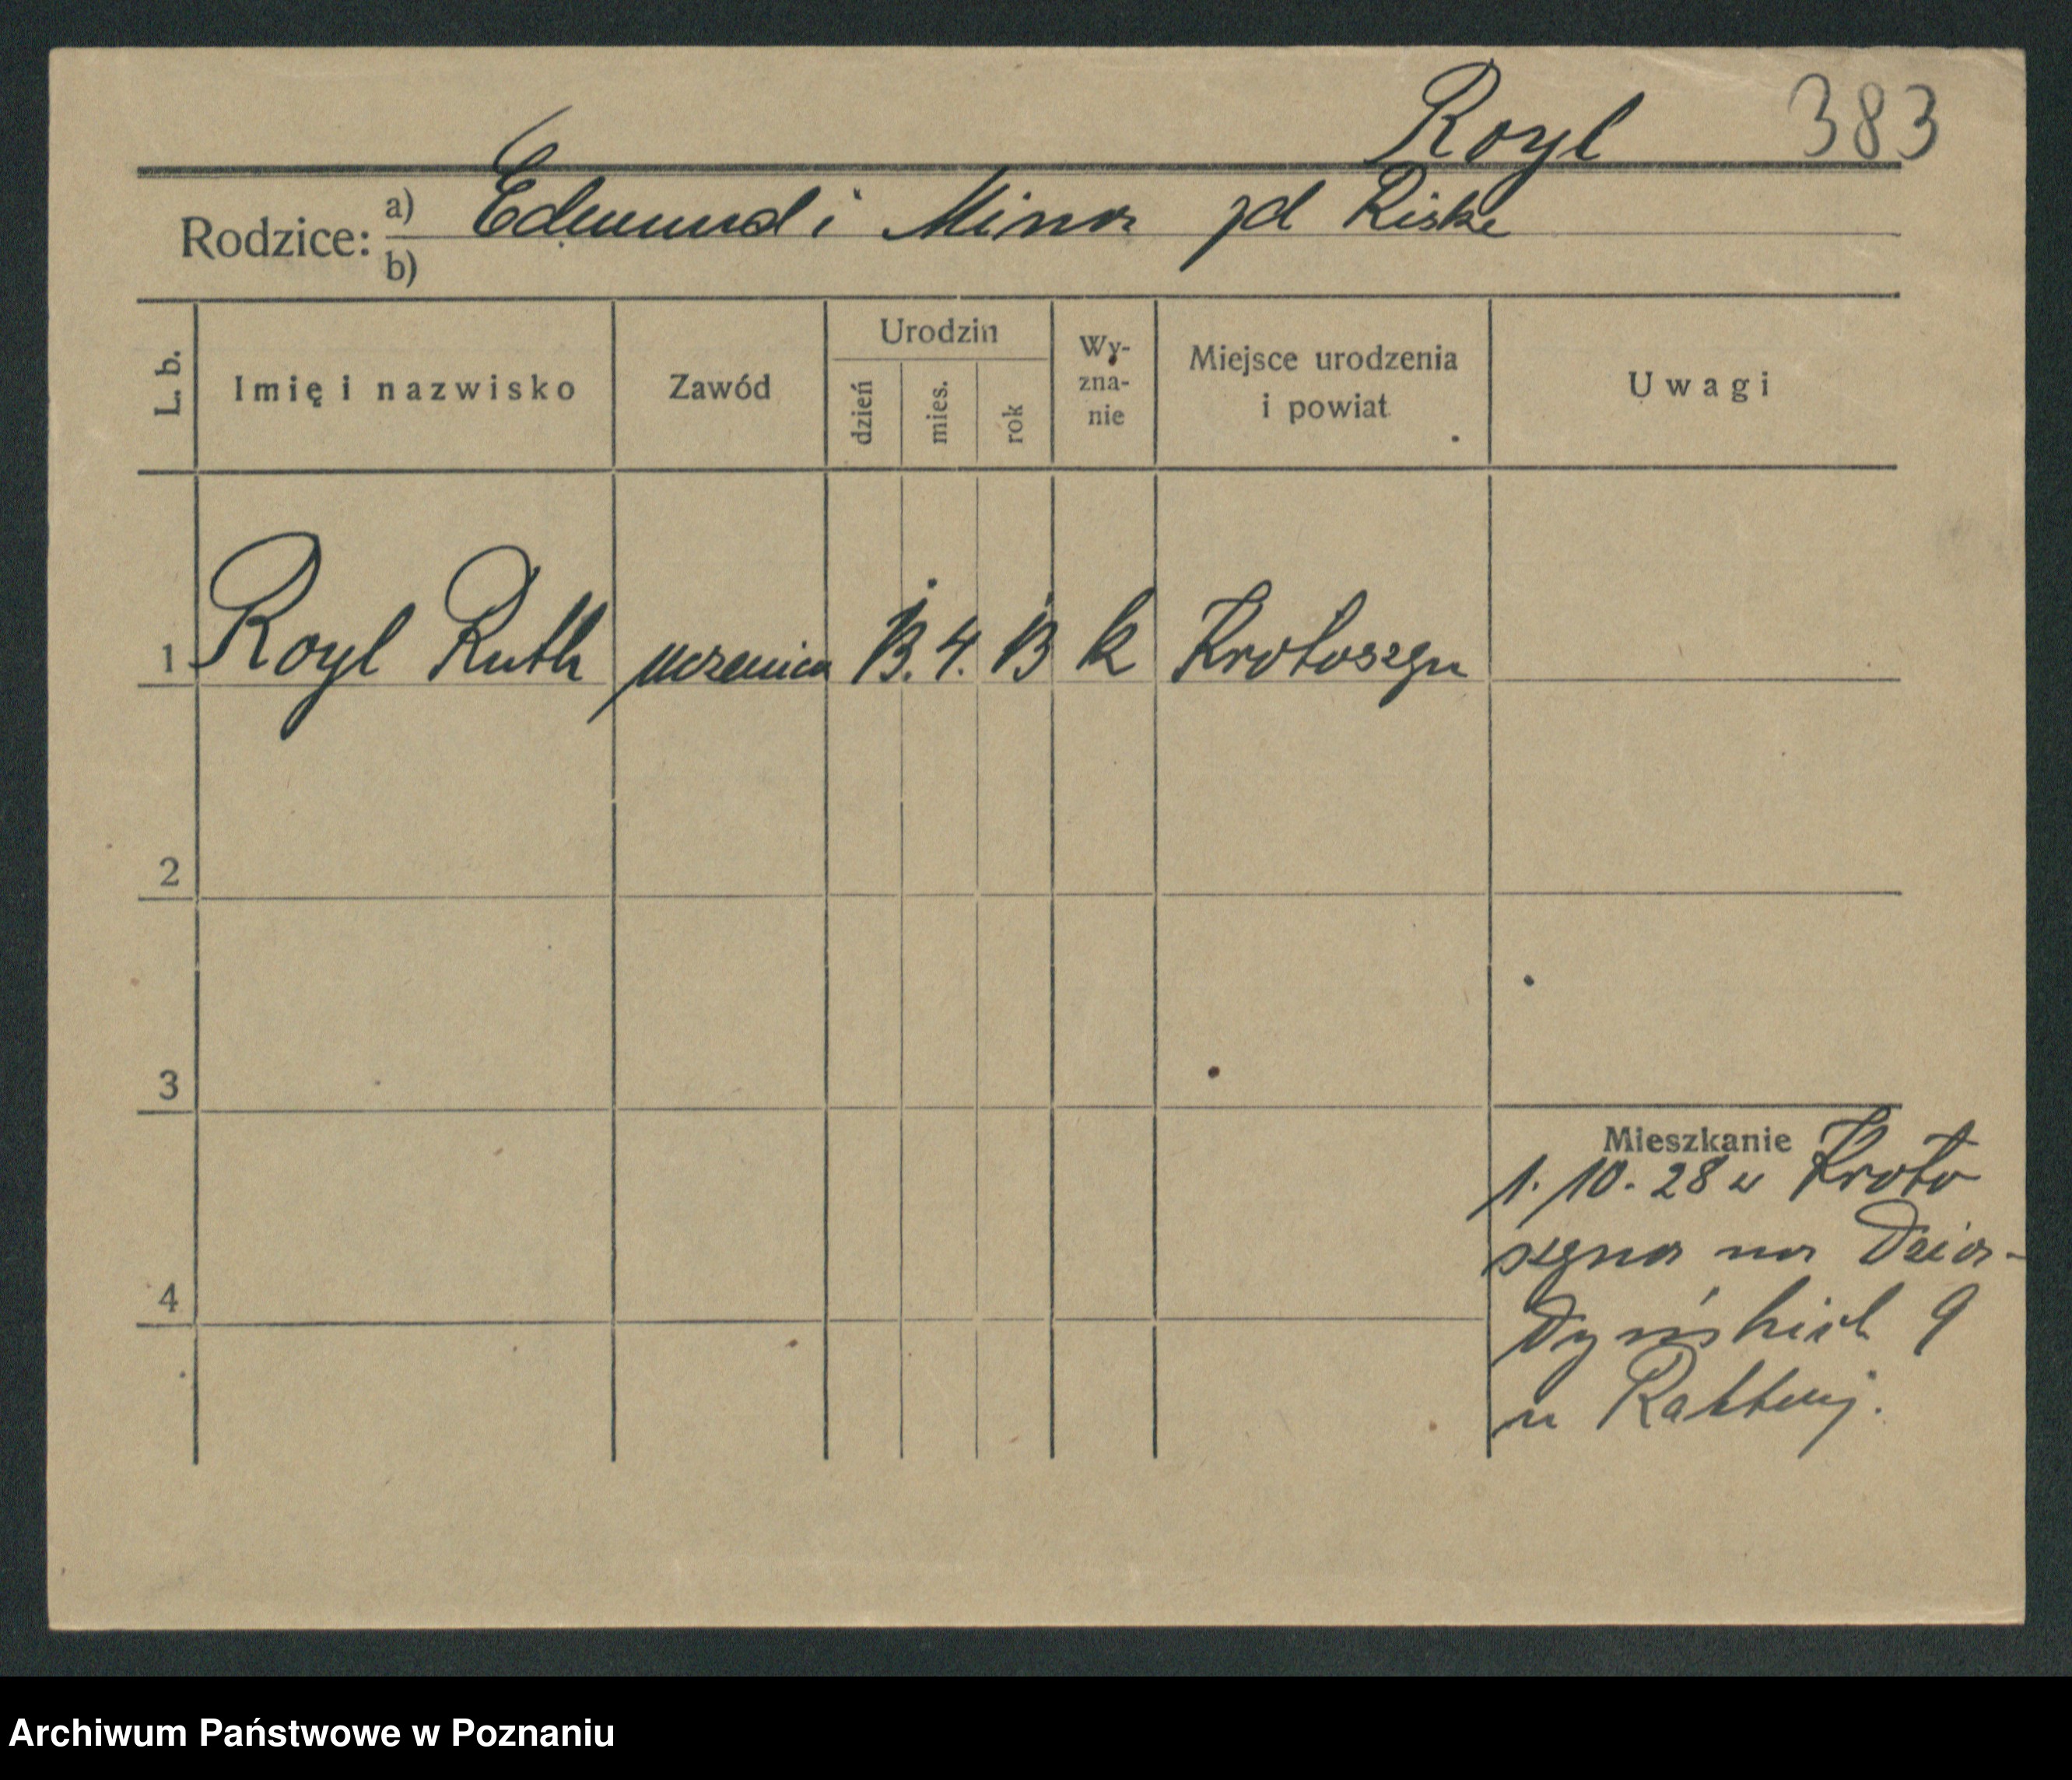 Royl 383
Rodzice: a) Edmund i Mina zd Riske
b)
L. b. Imię i nazwisko Zawód Urodzin dzień mies. rok Wy-zna-nie Miejsce urodzenia i powiat Uwagi
1 Royl Ruth uczenica 13. 4. 13 k Krotoszyn
2
3
Mieszkanie
1. 10. 28 w Kroto
szyna na Dzia-
4
dyńskich 9
u
Archiwum Państwowe w Poznaniu